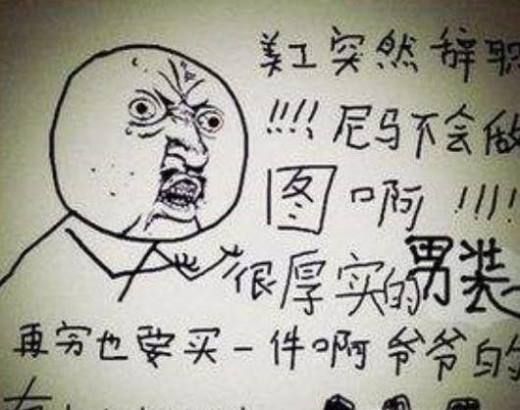 美工突然辞职
!!!! 尼马不会做
图啊!!!!
很厚实的男装
再穷也要买一件啊爷爷的